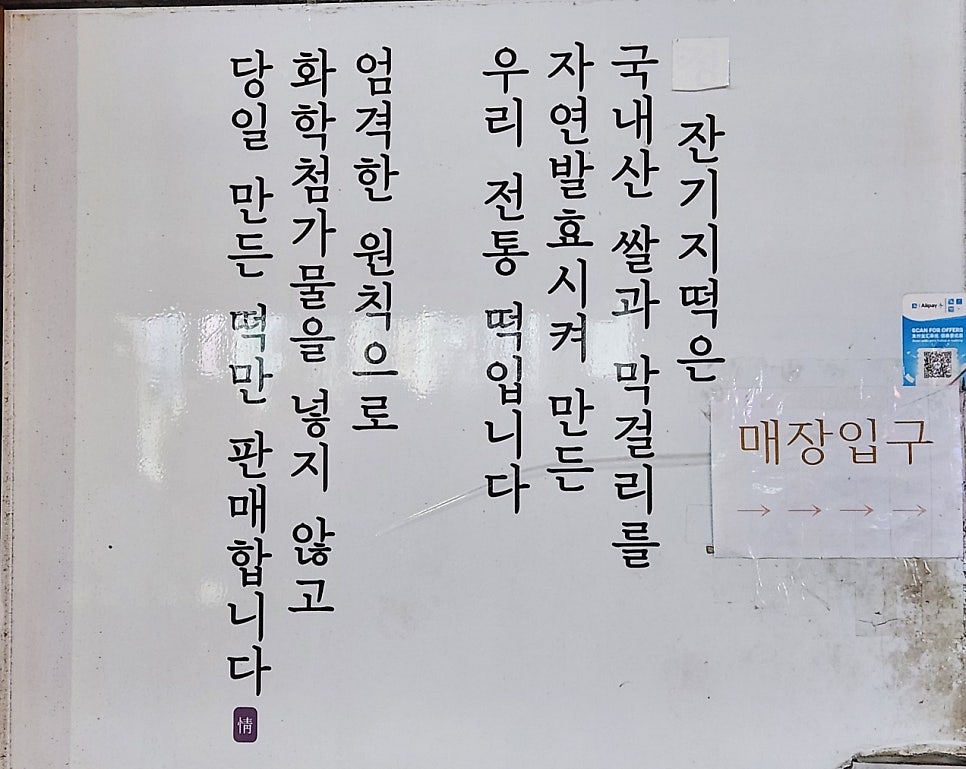 잔기지떡은
국내산 쌀과 막걸리를
자연발효시켜 만든
우리 전통 떡입니다
엄격한 원칙으로
화학첨가물을 넣지 않고
당일 만든 떡만 판매합니다
情
매장입구
→ → → →
Alipay+
SCAN FOR OFFERS